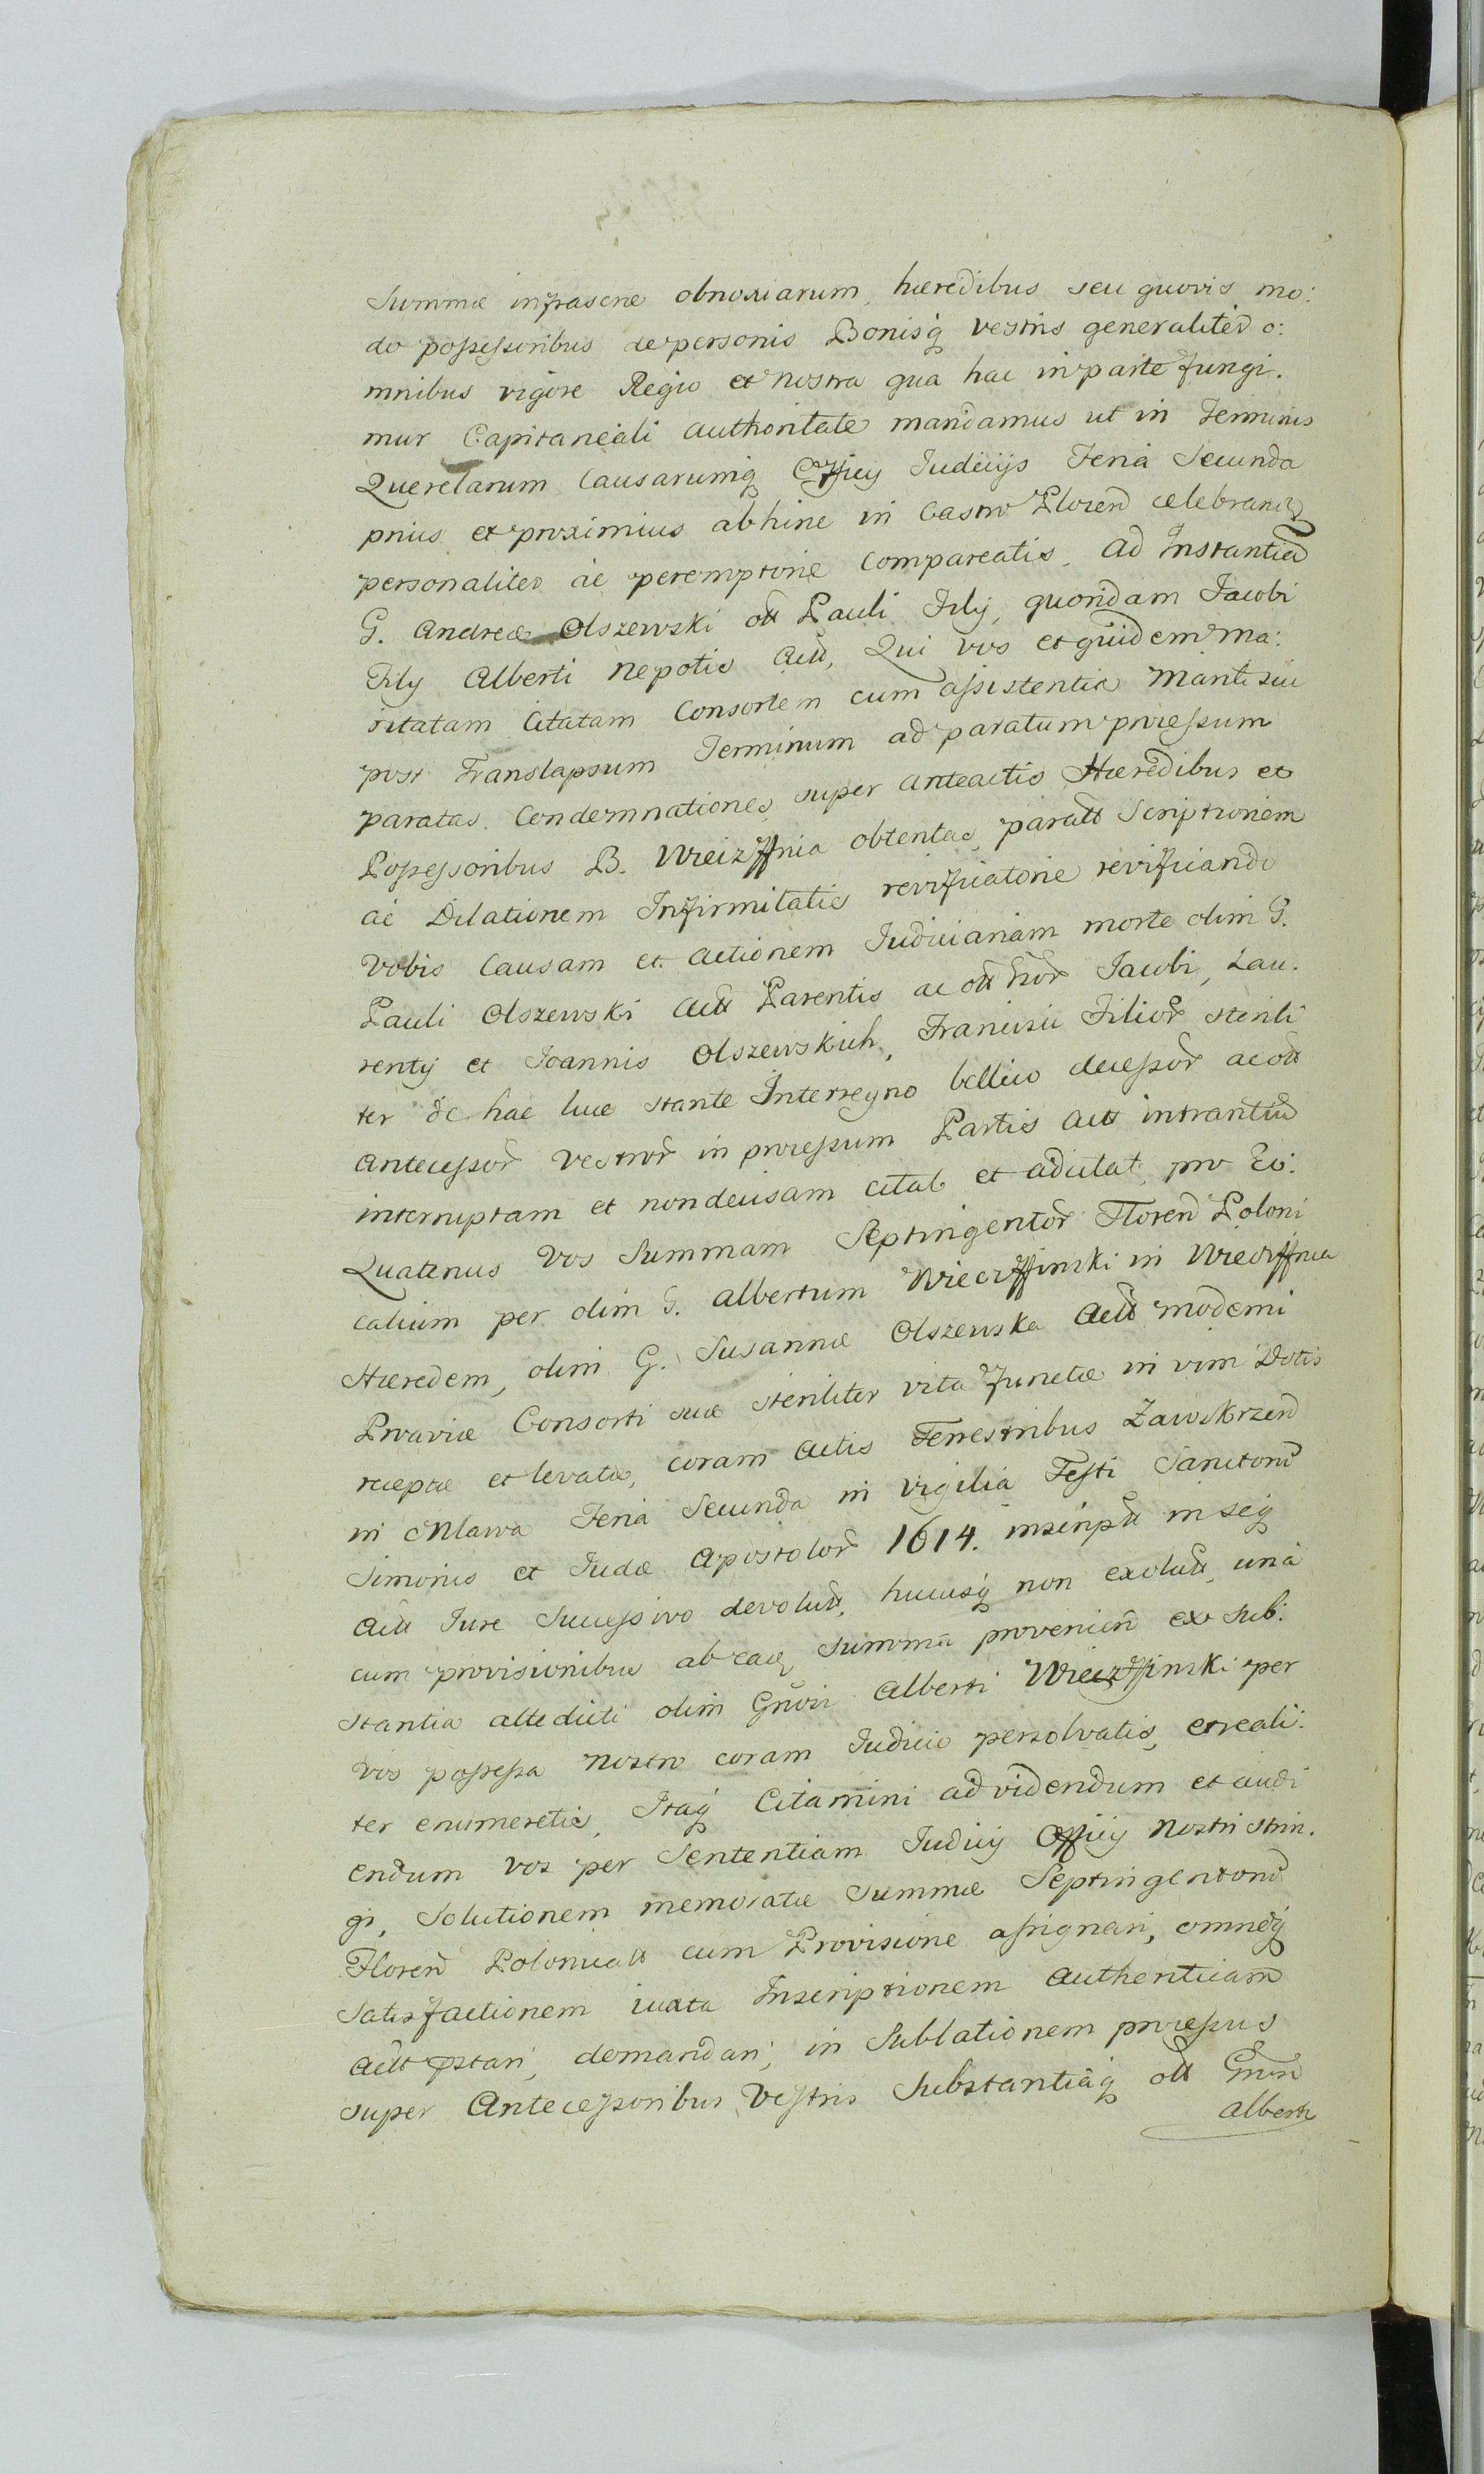 Summæ infrascrie obnoxiarum, hæredibus seu quovis mo:
do possessoribus de personis Bonisq̇ vestris generaliter̃ o:
mnibus vigore Regio et nostra qua hac in parte fungi.
mur Capitaneali authoritate mandamus ut in Terminis
Querelarum Causarumq̇ Officy Judicijs Feria Secunda
prius et proximius abhinc in Castro Plocen̄ celebrand
personaliter ac peremptorie compareatis, ad Instantia̅
G. Andreæ Olszewski ott Pauli Fily, quondam Jacobi
Fily Alberti Nepotis Actt, Qui vos et quidem ma:
ritatam Citatam Consortem cum assistentia Mariti sui
post Translapsum Terminum ad paratum processum
paratas Condemnationes super anteactis Hæredibus et
Possessoribus B. Wieczffnia obtentas, paratt Scriptionem
ac Dilationem Infirmitatis revificatorie revificando
Vobis Causam et Actionem Judiciariam morte olim G.
Pauli Olszewski Actt Parentis ac ott Nor̃ Jacobi, Lau.
renty et Joannis Olszewskich, Francisci Filior̃ sterili
ter de hac luce stante Interregno bellico decessor̃ ac ott
Antecessor̃ Vestror̃ in processum Partis Actt intrantiũ
interruptam et non decisam citat et adcitat pro Eo:
Quatenus Vos Summam Septingentor̃ Floren̄ Poloni
calium per olim G. Albertum Wieczffinski in Wieczffnia
Hæredem, olim G. Susannæ Olszewska Actt moderni
Proaviæ Consorti suæ steriliter vita functæ in vim Dotis
receptæ et levatæ, coram Actis Terrestribus Zawskrzen̄
in Mlawa Feria Secunda in vigilia Festi Sanctorũ
Simonis et Judæ Apostolor̃ 1614. inscriptt in seq̇
Actt Jure Successivo devolutt, hucusq̇ non exolutt, una
cum provisionibus ab eaq̇ summa provenien̄ ex sub:
stantia attedicti olim Gnrosi Alberti Wieczffinski per
vos possessa nostro coram Judicio persolvatis, et reali:
ter enumeretis, Itaq̇ Citamini ad videndum et audi
endum vos per Sententiam Judicy Officy Nostri strin.
gi, Solutionem memoratæ Summæ Septingentorũ
Floren̄ Polonicatt cum Provisione assignari, omneq̇
Satisfactionem iuxta Inscriptionem Authenticam
Actt pstari, demandari, in Sublationem processus
super Antecessoribus Vestris Substantiaq̇ ott Gnrosi
Alberti